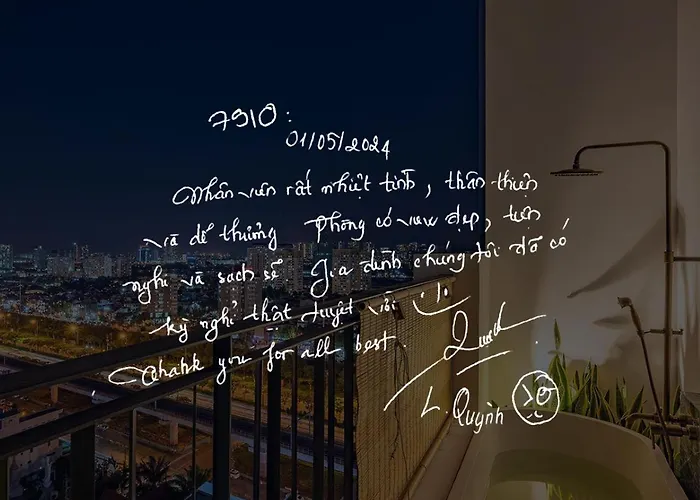 7910:
01/05/2024
Nhân viên rất nhiệt tình, thân thiện
và dễ thương Phòng có view đẹp, tiện
nghi và sạch sẽ. Gia đình chúng tôi đã có
kỳ nghỉ thật tuyệt vời
Thank you for all best.
L. Quỳnh